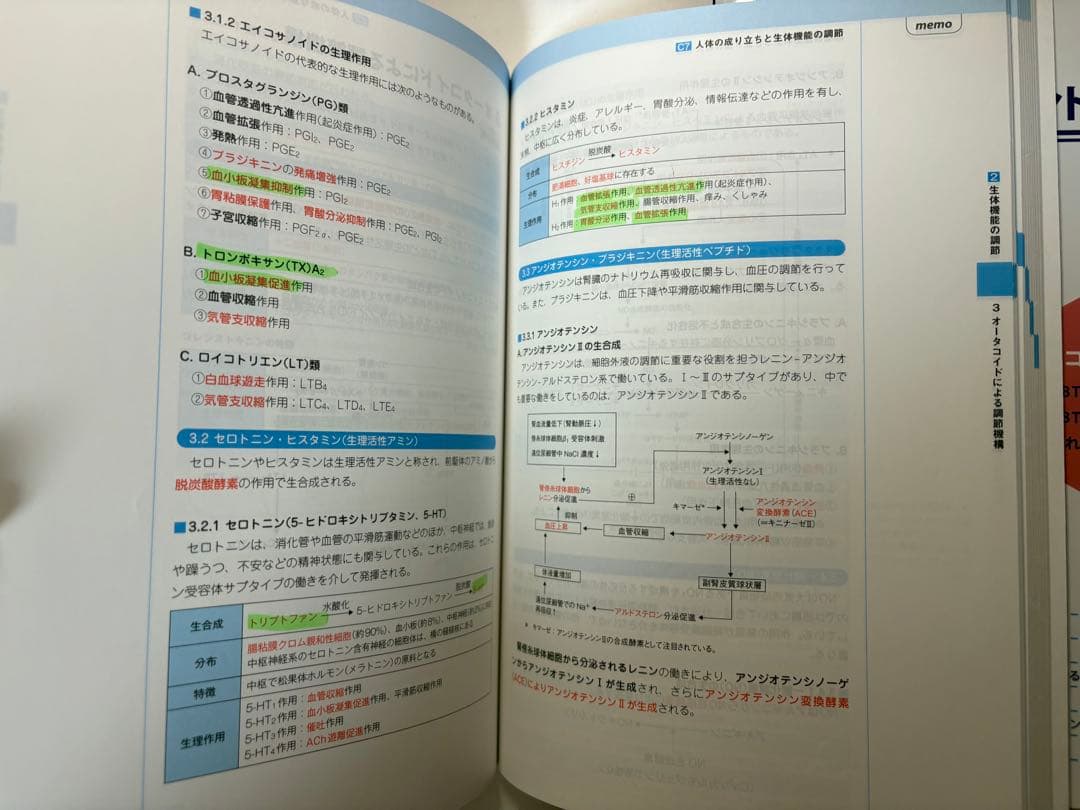 ■3.1.2 エイコサノイドの生理作用
エイコサノイドの代表的な生理作用には次のようなものがある。
A. プロスタグランジン(PG)類
①血管透過性亢進作用(起炎症作用)：PGE₂
②血管拡張作用：PGI₂、PGE₂
③発熱作用：PGE₂
④ブラジキニンの発痛増強作用：PGE₂
⑤血小板凝集抑制作用：PGI₂
⑥胃粘膜保護作用、胃酸分泌抑制作用：PGE₂、PGI₂
⑦子宮収縮作用：PGF₂α、PGE₂
B. トロンボキサン(TX)A₂
①血小板凝集促進作用
②血管収縮作用
③気管支収縮作用
C. ロイコトリエン(LT)類
①白血球遊走作用：LTB₄
②気管支収縮作用：LTC₄、LTD₄、LTE₄
3.2 セロトニン・ヒスタミン(生理活性アミン)
セロトニンやヒスタミンは生理活性アミンと称され、前駆体のアミノ酸から
脱炭酸酵素の作用で生合成される。
■3.2.1 セロトニン(5-ヒドロキシトリプタミン、5-HT)
セロトニンは、消化管や血管の平滑筋運動などのほか、中枢神経では、
や躁うつ、不安などの精神状態にも関与している。これらの作用は、セロトニ
ン受容体サブタイプの働きを介して発揮される。
生合成
トリプトファン 水酸化 5-ヒドロキシトリプトファン 脱炭酸
分布
腸粘膜クロム親和性細胞(約90%)、血小板(約8%)、中枢神経
中枢神経系のセロトニン含有神経の細胞体は、橋の縫線核にある
特徴
中枢で松果体ホルモン(メラトニン)の原料となる
生理作用
5-HT₁作用：血管収縮作用
5-HT₂作用：血小板凝集促進作用、平滑筋収縮作用
5-HT₃作用：催吐作用
5-HT₄作用：ACh遊離促進作用
C7 人体の成り立ちと生体機能の調節
memo
■3.2.2 ヒスタミン
ヒスタミンは、炎症、アレルギー、胃酸分泌、情報伝達などの作用を有し、
中枢に広く分布している。
生合成
ヒスチジン 脱炭酸 ヒスタミン
分布
肥満細胞、好塩基球に存在する
生理作用
H₁作用：血管拡張作用、血管透過性亢進作用(起炎症作用)、
気管支収縮作用、腸管収縮作用、痒み、くしゃみ
H₂作用：胃酸分泌作用、血管拡張作用
3.3 アンジオテンシン・ブラジキニン(生理活性ペプチド)
アンジオテンシンは腎臓のナトリウム再吸収に関与し、血圧の調節を行って
いる。また、ブラジキニンは、血圧下降や平滑筋収縮作用に関与している。
■3.3.1 アンジオテンシン
A. アンジオテンシンⅡの生合成
アンジオテンシンは、細胞外液の調節に重要な役割を担うレニン-アンジオ
テンシン-アルドステロン系で働いている。Ⅰ～Ⅲのサブタイプがあり、中で
も重要な働きをしているのは、アンジオテンシンⅡである。
腎血流量低下(腎動脈圧↓)
傍糸球体細胞β₁受容体刺激
遠位尿細管中NaCl濃度↓
アンジオテンシノーゲン
傍糸球体細胞から
レニン分泌促進
⊕
アンジオテンシンⅠ
(生理活性なし)
キマーゼ*
アンジオテンシン
変換酵素(ACE)
(＝キニナーゼⅡ)
抑制
血圧上昇
血管収縮
アンジオテンシンⅡ
体液量増加
副腎皮質球状層
遠位尿細管でのNa⁺
再吸収↑
アルドステロン分泌促進
* キマーゼ：アンジオテンシンⅡの合成酵素として注目されている。
傍糸球体細胞から分泌されるレニンの働きにより、アンジオテンシノーゲ
ンからアンジオテンシンⅠが生成され、さらにアンジオテンシン変換酵素
(ACE)によりアンジオテンシンⅡが生成される。
2 生体機能の調節
3 オータコイドによる調節機構